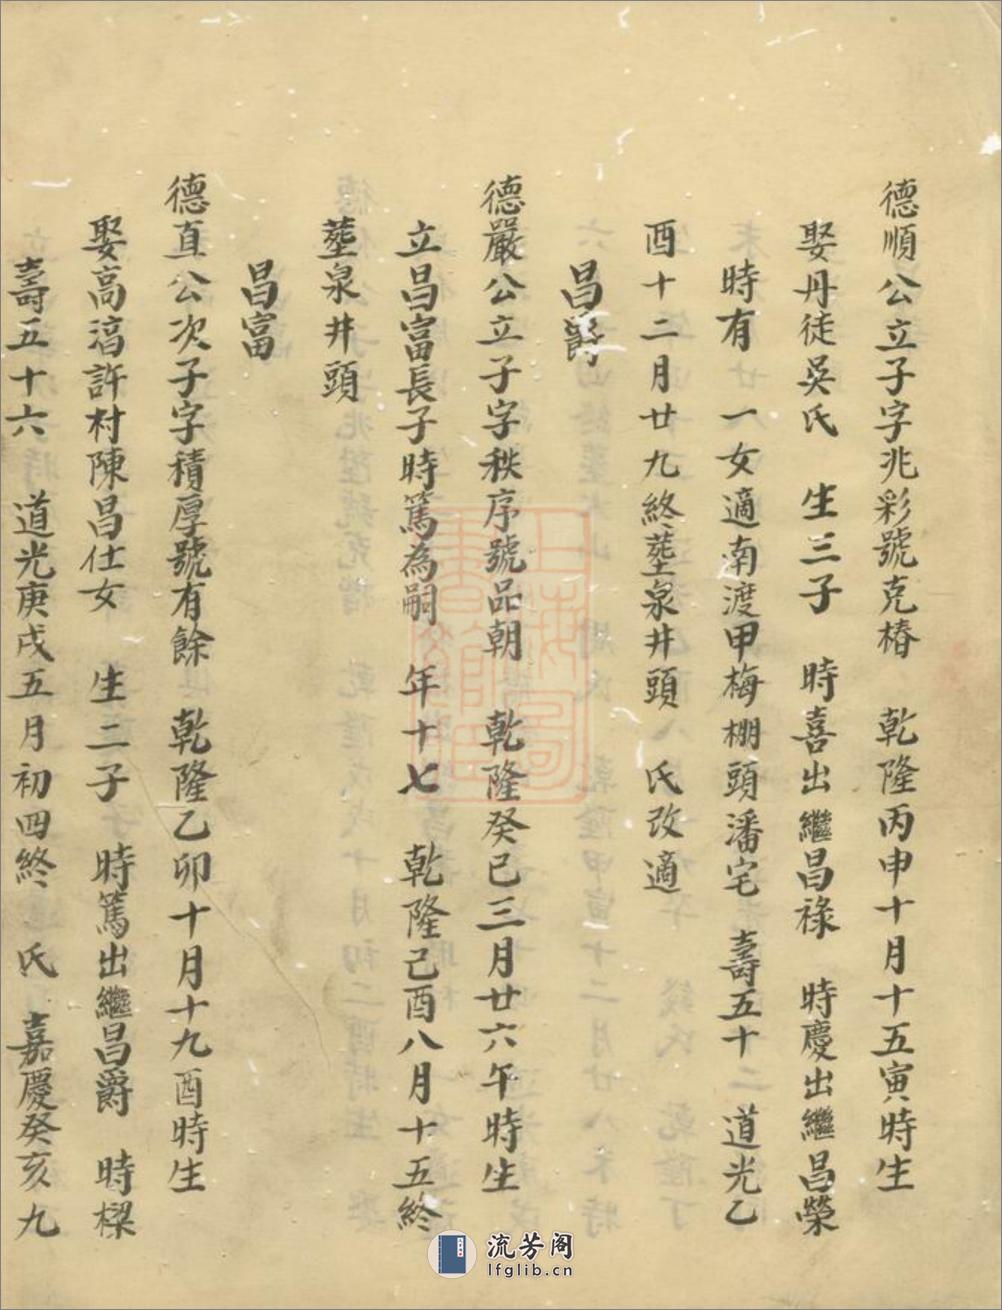 德順公立子字兆彩號克椿　乾隆丙申十月十五寅時生
娶丹徒吳氏　生三子　時喜出繼昌祿　時慶出繼昌榮
時有　一女適南渡甲梅棚頭潘宅　壽五十二道光乙
酉十二月廿九終塟泉井頭　氏改適
昌爵
德嚴公立子字秩序號品朝　乾隆癸巳三月廿六午時生
立昌富長子時篤為嗣　年十七　乾隆己酉八月十五終
塟泉井頭
昌富
德直公次子字積厚號有餘　乾隆乙卯十月十九酉時生
娶高淳許村陳昌仕女　生二子　時篤出繼昌爵　時樑
壽五十六　道光庚戌五月初四終　氏　嘉慶癸亥九
流芳阁
lfglib.cn